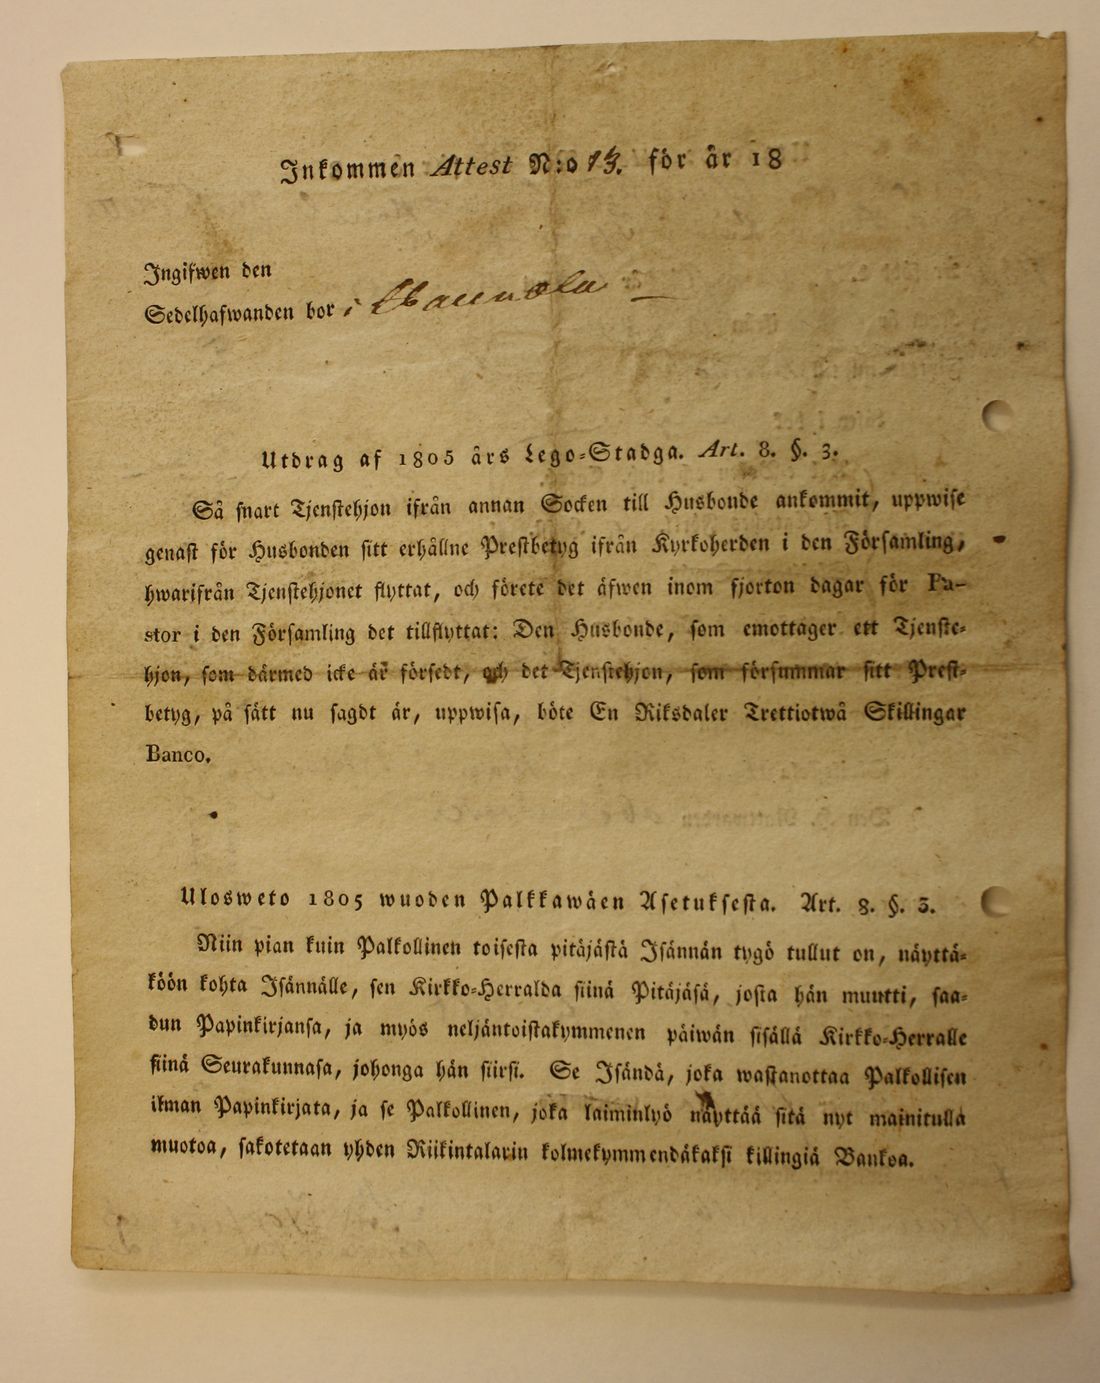 Inkommen Attest N:o 13. för år 18
Ingifwen den
Sedelhafwanden bor i
Utdrag af 1805 års Lego-Stadga. Art. 8. §. 3.
Så snart Tjenstehjon ifrån annan Socken till Husbonde ankommit, uppwise
genast för Husbonden sitt erhållne Prestbetyg ifrån Kyrkoherden i den Församling,
hwarifrån Tjenstehjonet flyttat, och förete det äfwen inom fjorton dagar för Pa-
stor i den Församling det tillflyttat: Den Husbonde, som emottager ett Tjenste-
hjon, som därmed icke är försedt, och det Tjenstehjon, som försummar sitt Prest-
betyg, på sätt nu sagdt är, uppwisa, böte En Riksdaler Trettiotwå Skillingar
Banco.
Ulosweto 1805 wuoden Palkkawäen Asetuksesta. Art. 8. §. 3.
Niin pian kuin Palkollinen toisesta pitäjästä Isännän tygö tullut on, näyttä-
köön kohta Isännälle, sen Kirkko-Herralda siinä Pitäjäsä, josta hän muutti, saa-
dun Papinkirjansa, ja myös neljäntoistakymmenen päiwän sisällä Kirkko-Herralle
siinä Seurakunnasa, johonga hän siirsi. Se Isändä, joka wastanottaa Palkollisen
ilman Papinkirjata, ja se Palkollinen, joka laiminlyö näyttää sitä nyt mainitulla
muotoa, sakotetaan yhden Riikintalarin kolmekymmendäkaksi killingiä Bankoa.